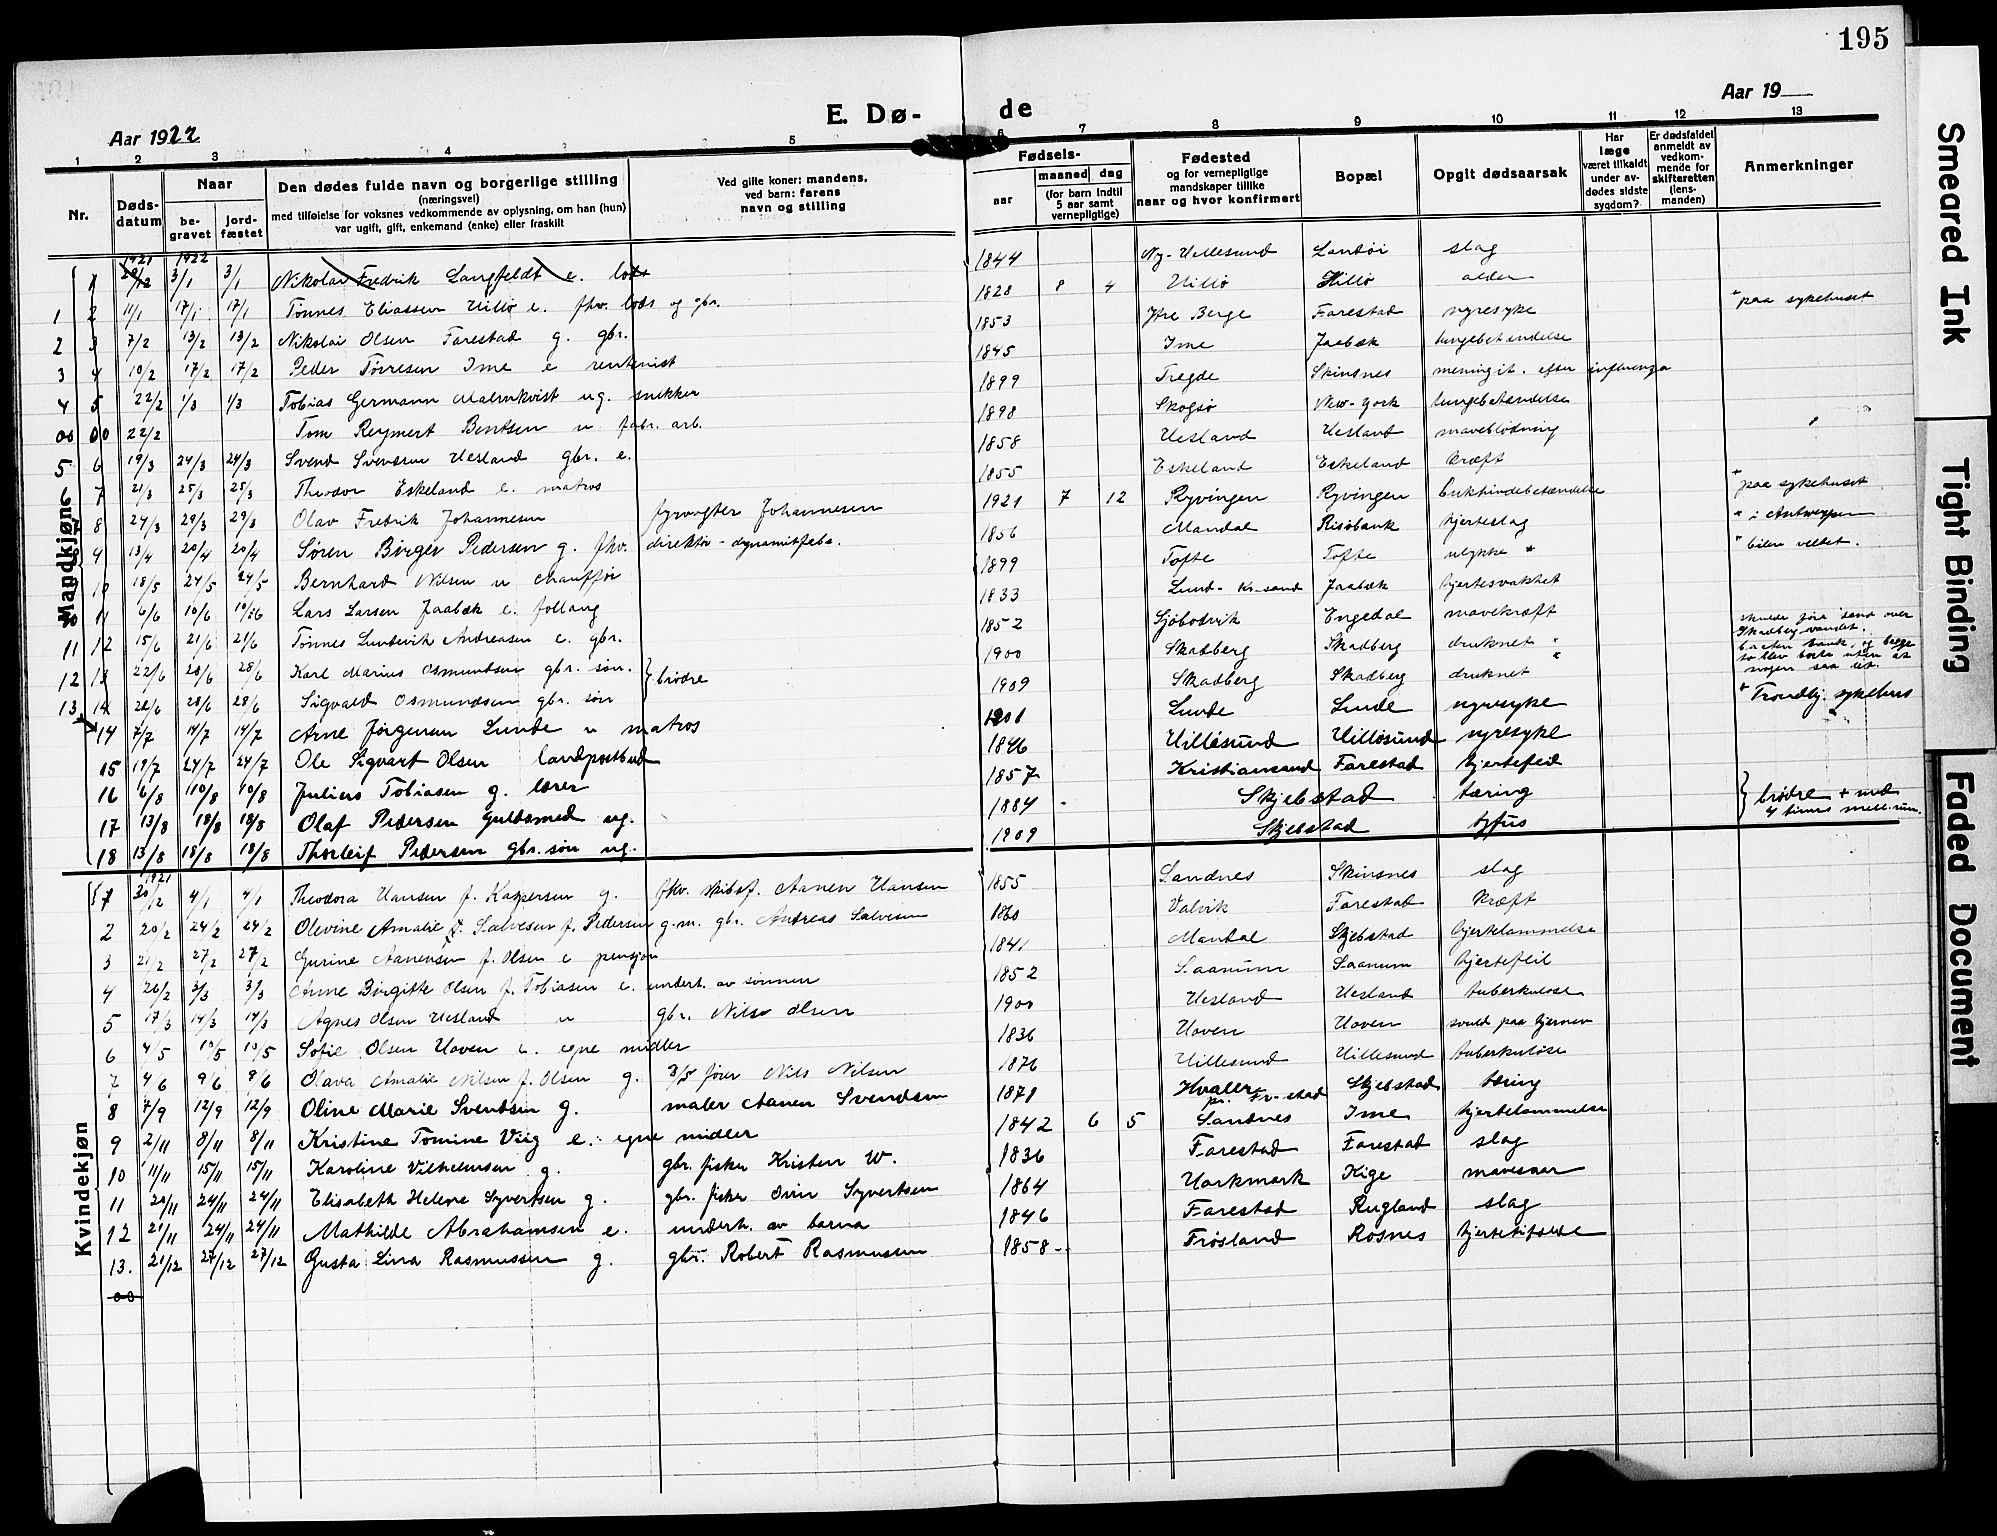 195
E. Dø- de
Aar 1922
Aar 19
1 2 3 4 5 6 7 8 9 10 11 12 13
Nr.
Døds-datum
Naar
be-gravet
jord-fæstet
Den dødes fulde navn og borgerlige stilling
(næringsvei)
med tilføielse for voksnes vedkommende av oplysning, om han (hun)
var ugift, gift, enkemand (enke) eller fraskilt
Ved gifte koner: mandens,
ved barn: farens
navn og stilling
Fødsels-
aar
maaned dag
(for barn indtil
5 aar samt
vernepligtige)
Fødested
og for vernepligtige
mandskaper tillike
naar og hvor konfirmert
Bopæl
Opgit dødsaarsak
Har
læge
været tilkaldt
under av-
dødes sidste
sygdom?
Er dødsfaldet
anmeldt av
vedkom-
mende for
skifteretten
(lens-
manden)
Anmerkninger
Mandkjøn
1921 1922
1 29/12 3/1 3/1 Nikolai Fredrik Langfeldt e. lods 1844 Ny-Hellesund Landøi slag
1 2 11/1 17/1 17/1 Tønnes Eliassen Hillø e. fhv. lods og gbr. 1828 8 4 Hillø Hillø alder
2 3 7/2 13/2 13/2 Nikolai Olsen Farestad g. gbr. 1853 Ytre Berge Farestad nyresyke * paa sykehuset
3 4 10/2 17/2 17/2 Peder Tørresen Ime e rentenist 1845 Ime Jaabæk lungebetændelse
4 5 22/2 1/3 1/3 Tobias Germann Malmkvist ug. snekker 1899 Tregde Skinsnes meningit. efter influenza
00 00 22/2 Tom Reymert Bentsen u fabr. arb. 1898 Skogsø New-York lungebetændelse
5 6 19/3 24/3 24/3 Svend Svendsen Uesland gbr. e. 1858 Uesland Uesland maveblødning
7 21/3 25/3 25/3 Theodor Eskeland e. matros 1855 Eskeland Eskeland kræft
8 24/3 29/3 29/3 Olav Fredrik Johannesen fyrvogter Johannesen 1921 7 12 Ryvingen Ryvingen bukhindebetændelse * paa sykehuset
9 13/4 20/4 20/4 Søren Birger Pedersen g. fhv. direktør - dynamitfabr. 1856 Mandal Risøbank hjerteslag * i Antwerpen
10 18/5 24/5 24/5 Bernhard Nilsen u chauffør 1899 Tofte Tofte ulykke * * bilen veltet.
10 11 6/6 10/6 10/6 Lars Larsen Jaabæk e. follaug 1833 Lund - Kr-sand Jaabæk hjertesvakhet
11 12 15/6 21/6 21/6 Tønnes Ludevik Andreasen e. gbr. 1852 Sjøbodvik Engedal mavekræft
12 13 22/6 28/6 28/6 Karl Marius Osmundsen gbr. søn. } brødre 1900 Skadberg Skadberg druknet * skulde føre sand over Skadberg vandet.
13 14 22/6 28/6 28/6 Sigvald Osmundsen gbr. søn 1909 Skadberg Skadberg druknet * baaten sank, og begge to blev borte uten at nogen saa det.
14 7/7 14/7 14/7 Arne Jørgensen Lunde u matros 1901 Lunde Lunde nyresyke * Trondhj. sykehus
15 19/7 24/7 24/7 Ole Sigvart Olsen landpostbud 1846 Hillesund Hillesund nyresyke
16 6/8 10/8 10/8 Julius Tobiasen g. lærer 1857 Kristiansand Farestad hjertefeil
17 13/8 18/8 18/8 Olaf Pedersen Guldsmed ug. 1884 - Skjebstad tæring } brødre + med
18 13/8 18/8 18/8 Thorleif Pedersen gbr. søn ug. 1909 Skjebstad tyfus 4 timers mell.rum.
Kvindekjøn
1921
1 30/12 4/1 4/1 Theodora Hansen f. Kaspersen g. fhv. skibsf. Aanen Hansen 1855 Sandnes Skinsnes slag
2 20/2 24/2 24/2 Olevine Amalie Salvesen f. Pedersen g.m. gbr. Andreas Salvesen 1860 Valvik Farestad kræft
3 21/2 27/2 27/2 Gurine Aanensen f. Olsen e pensjon 1841 Mandal Skjebstad hjertelammelse
4 26/2 3/3 3/3 Anne Birgitte Olsen f. Tobiasen e. underh. av sønnen 1852 Saanum Saanum hjertefeil
5 17/3 14/3 14/3 Agnes Olsen Uesland u gbr. Nils Olsen 1900 Uesland Uesland tuberkulose
6 4/5 10/5 10/5 Sofie Olsen Hoven e. egne midler 1836 Hoven Hoven svuld paa hjernen
7 4/6 9/6 9/6 Olava Amalie Nilsen f. Olsen g. D/S fører Nils Nilsen 1876 Hillesund Hillesund tuberkulose
8 7/9 12/9 12/9 Oline Marie Svendsen g. maler Aanen Svendsen 1871 Hvaler pr. Fr-stad Skjebstad tæring
9 2/11 8/11 8/11 Kristine Tomine Viig e. egne midler 1842 6 5 Sandnes Ime hjertelammelse
10 11/11 15/11 15/11 Karoline Vilhelmsen g. gbr. fisker Kristen W. 1836 Farestad Farestad slag
11 20/11 24/11 24/11 Elisabeth Helene Syvertsen g. gbr. fisker Syvertsen 1864 Harkmark Kige mavesaar
12 21/11 24/11 24/11 Mathilde Abrahamsen e. underh. av barna 1846 Farestad Rugland slag
13. 21/12 27/12 27/12 Gusta Lina Rasmussen g. gbr. Robert Rasmussen 1858 - Frøsland Rosnes
00
Smeared Ink
Tight Binding
Faded Document